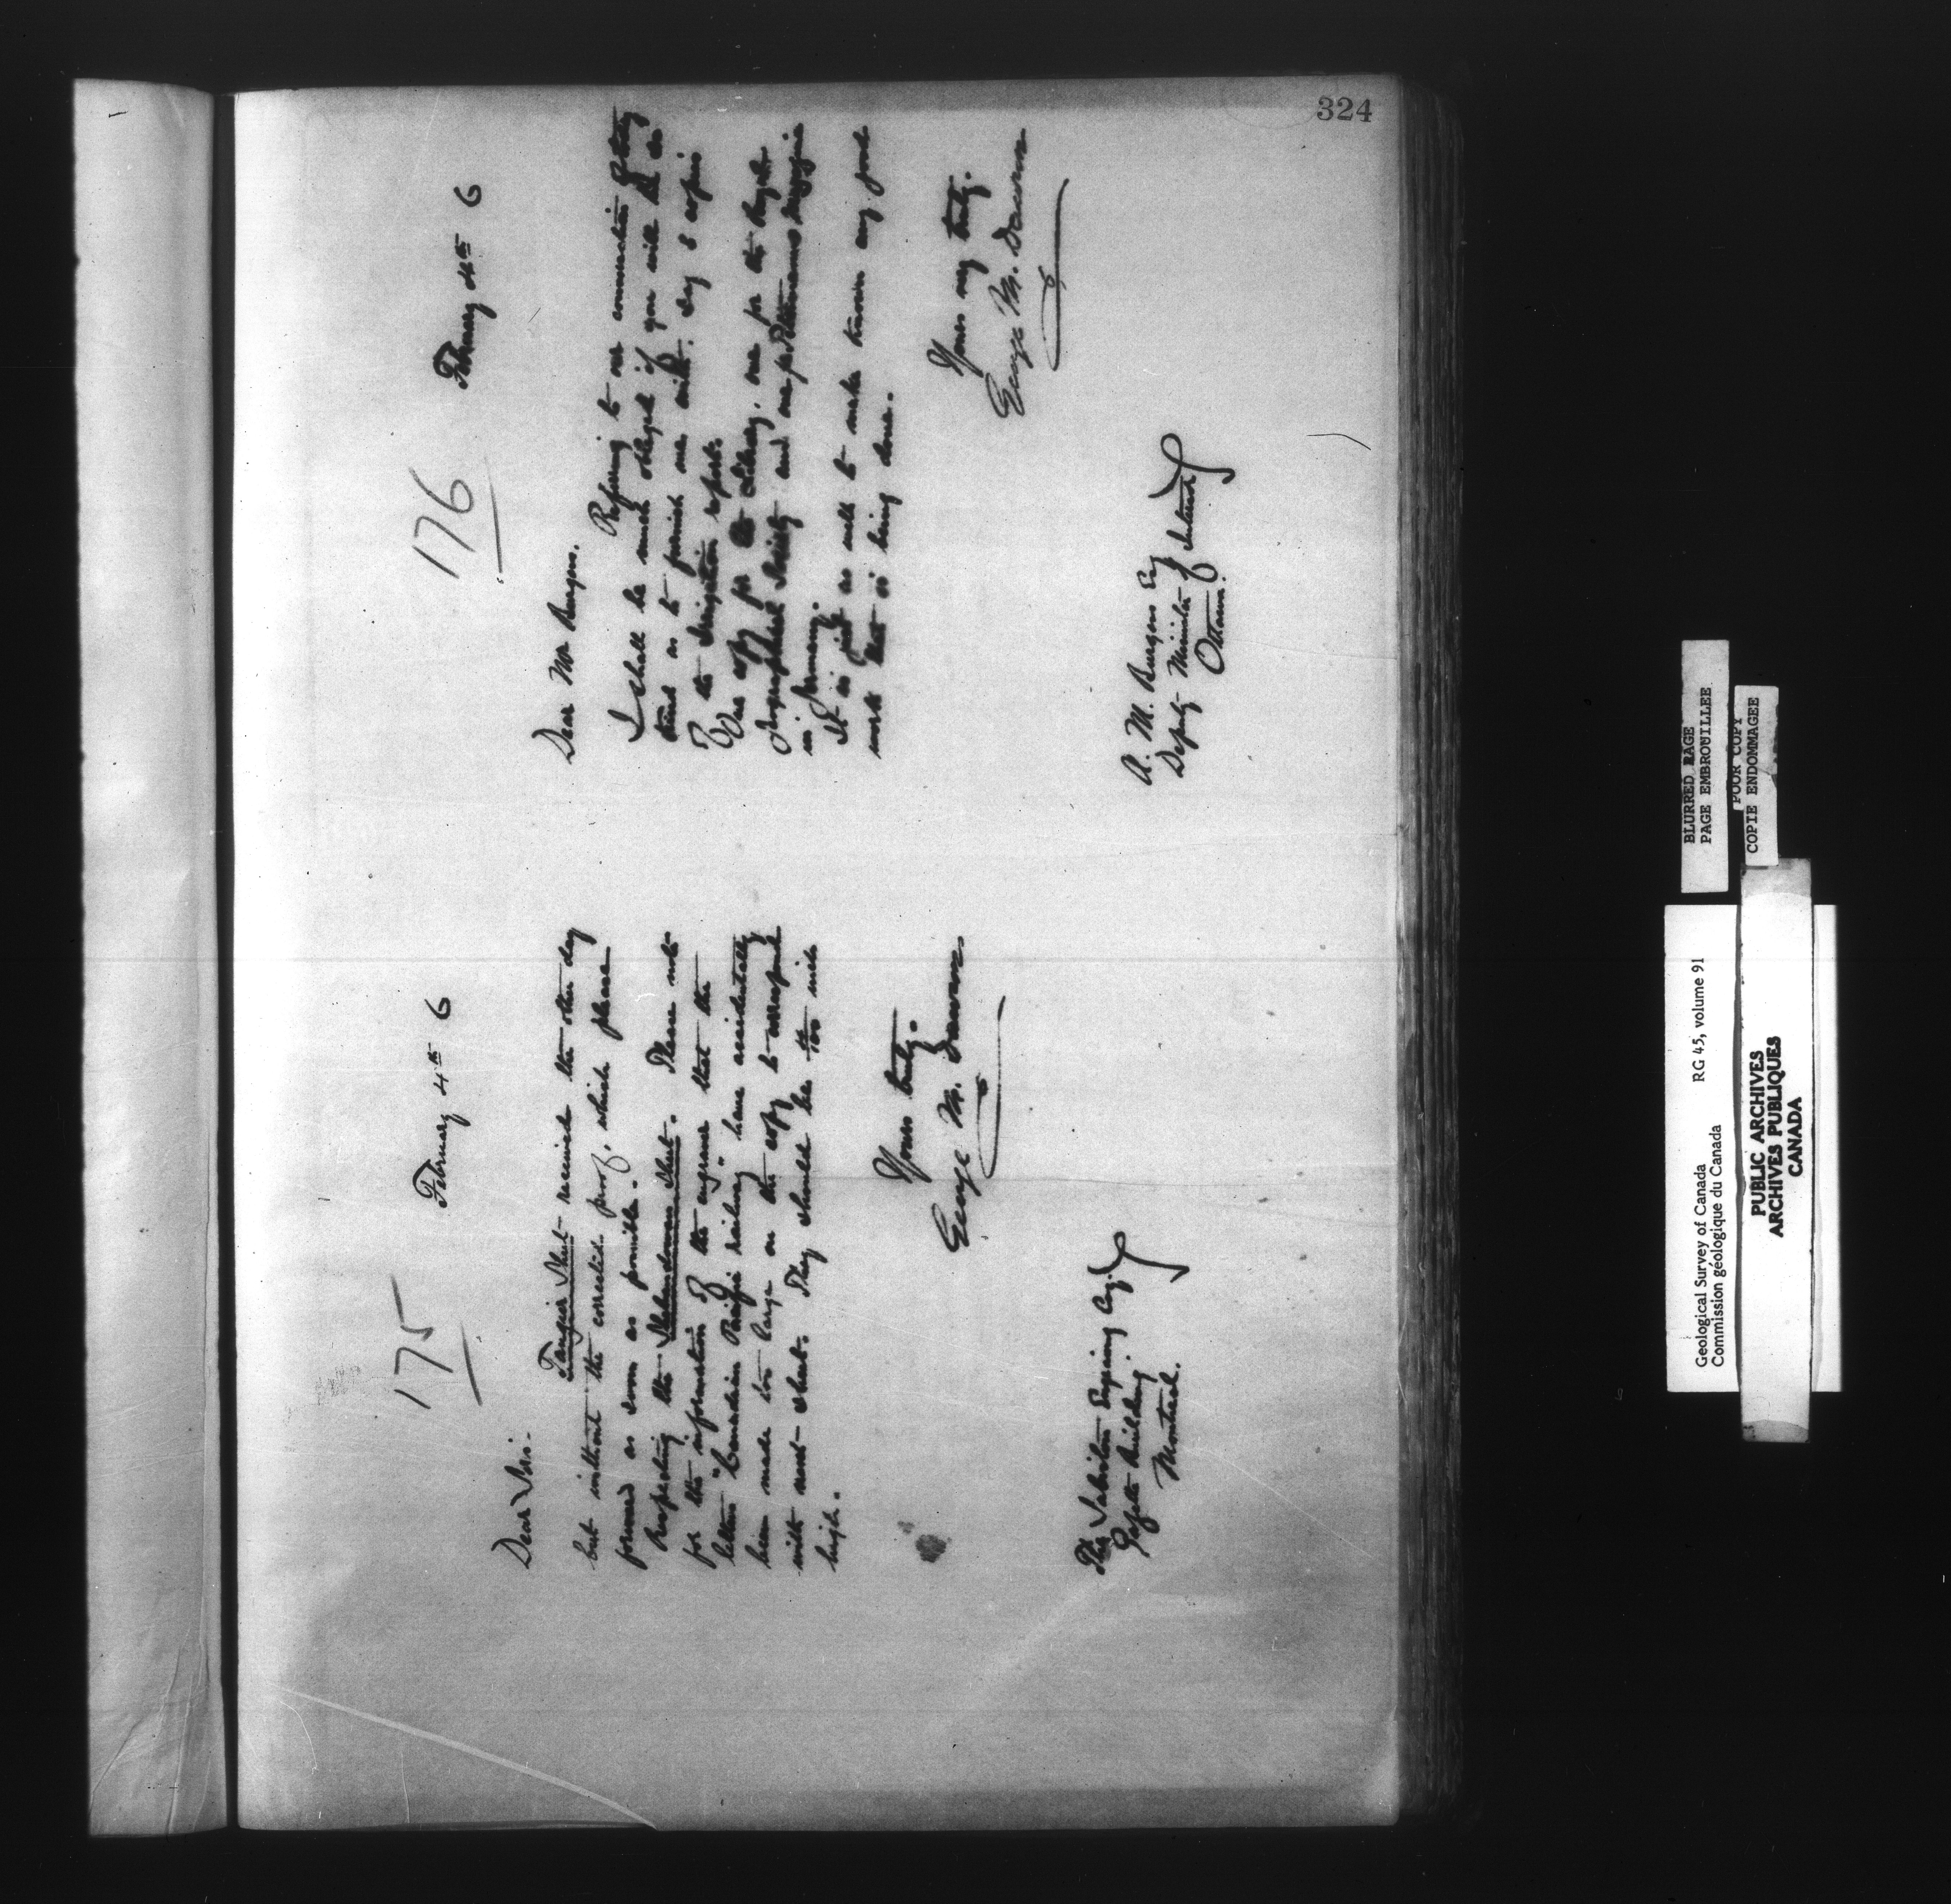 324
175
February 4th 6
Dear Sir.
Tangier Sheet received the other day
but without the corrected proof, which please
forward as soon as possible.
Respecting the Shubenacadie Sheet. Please note
for the information of the engraver that the
letters "Canadian Pacific railway" have accidentally
been made too large on the copy to correspond
with next sheet. They should be inch
high.
Yours truly.
George M. Dawson
The Sabiston Engraving Coy.
Gazette Building
Montreal.
176
February 4th 6
Dear Mr Burgess.
Referring to our conversation
I shall be much obliged if you will be so
kind as to furnish me with, say 3 copies
of the Irrigation report.
One copy for the Library, one for the Royal
Geographical Society and one for Petermanns
in Germany.
It is just as well to make known any good
work that is being done.
Yours very truly.
George M. Dawson
A. M. Burgess Esq
Deputy Minister of Interior
Ottawa.
BLURRED PAGE
PAGE EMBROUILLEE
POOR COPY
COPIE ENDOMMAGEE
Geological Survey of Canada RG 45, volume 91
Commission géologique du Canada
PUBLIC ARCHIVES
ARCHIVES PUBLIQUES
CANADA